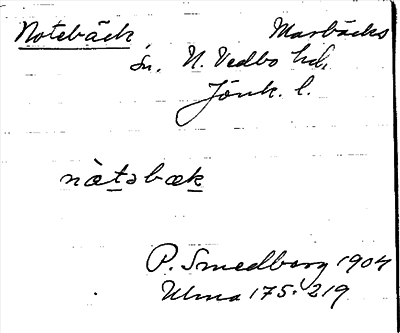 Notebäck Marbäcks
sn, N. Vedbo hd,
Jönk. l.
nàtəbæk
P. Smedberg 1904
Ulma 175:219